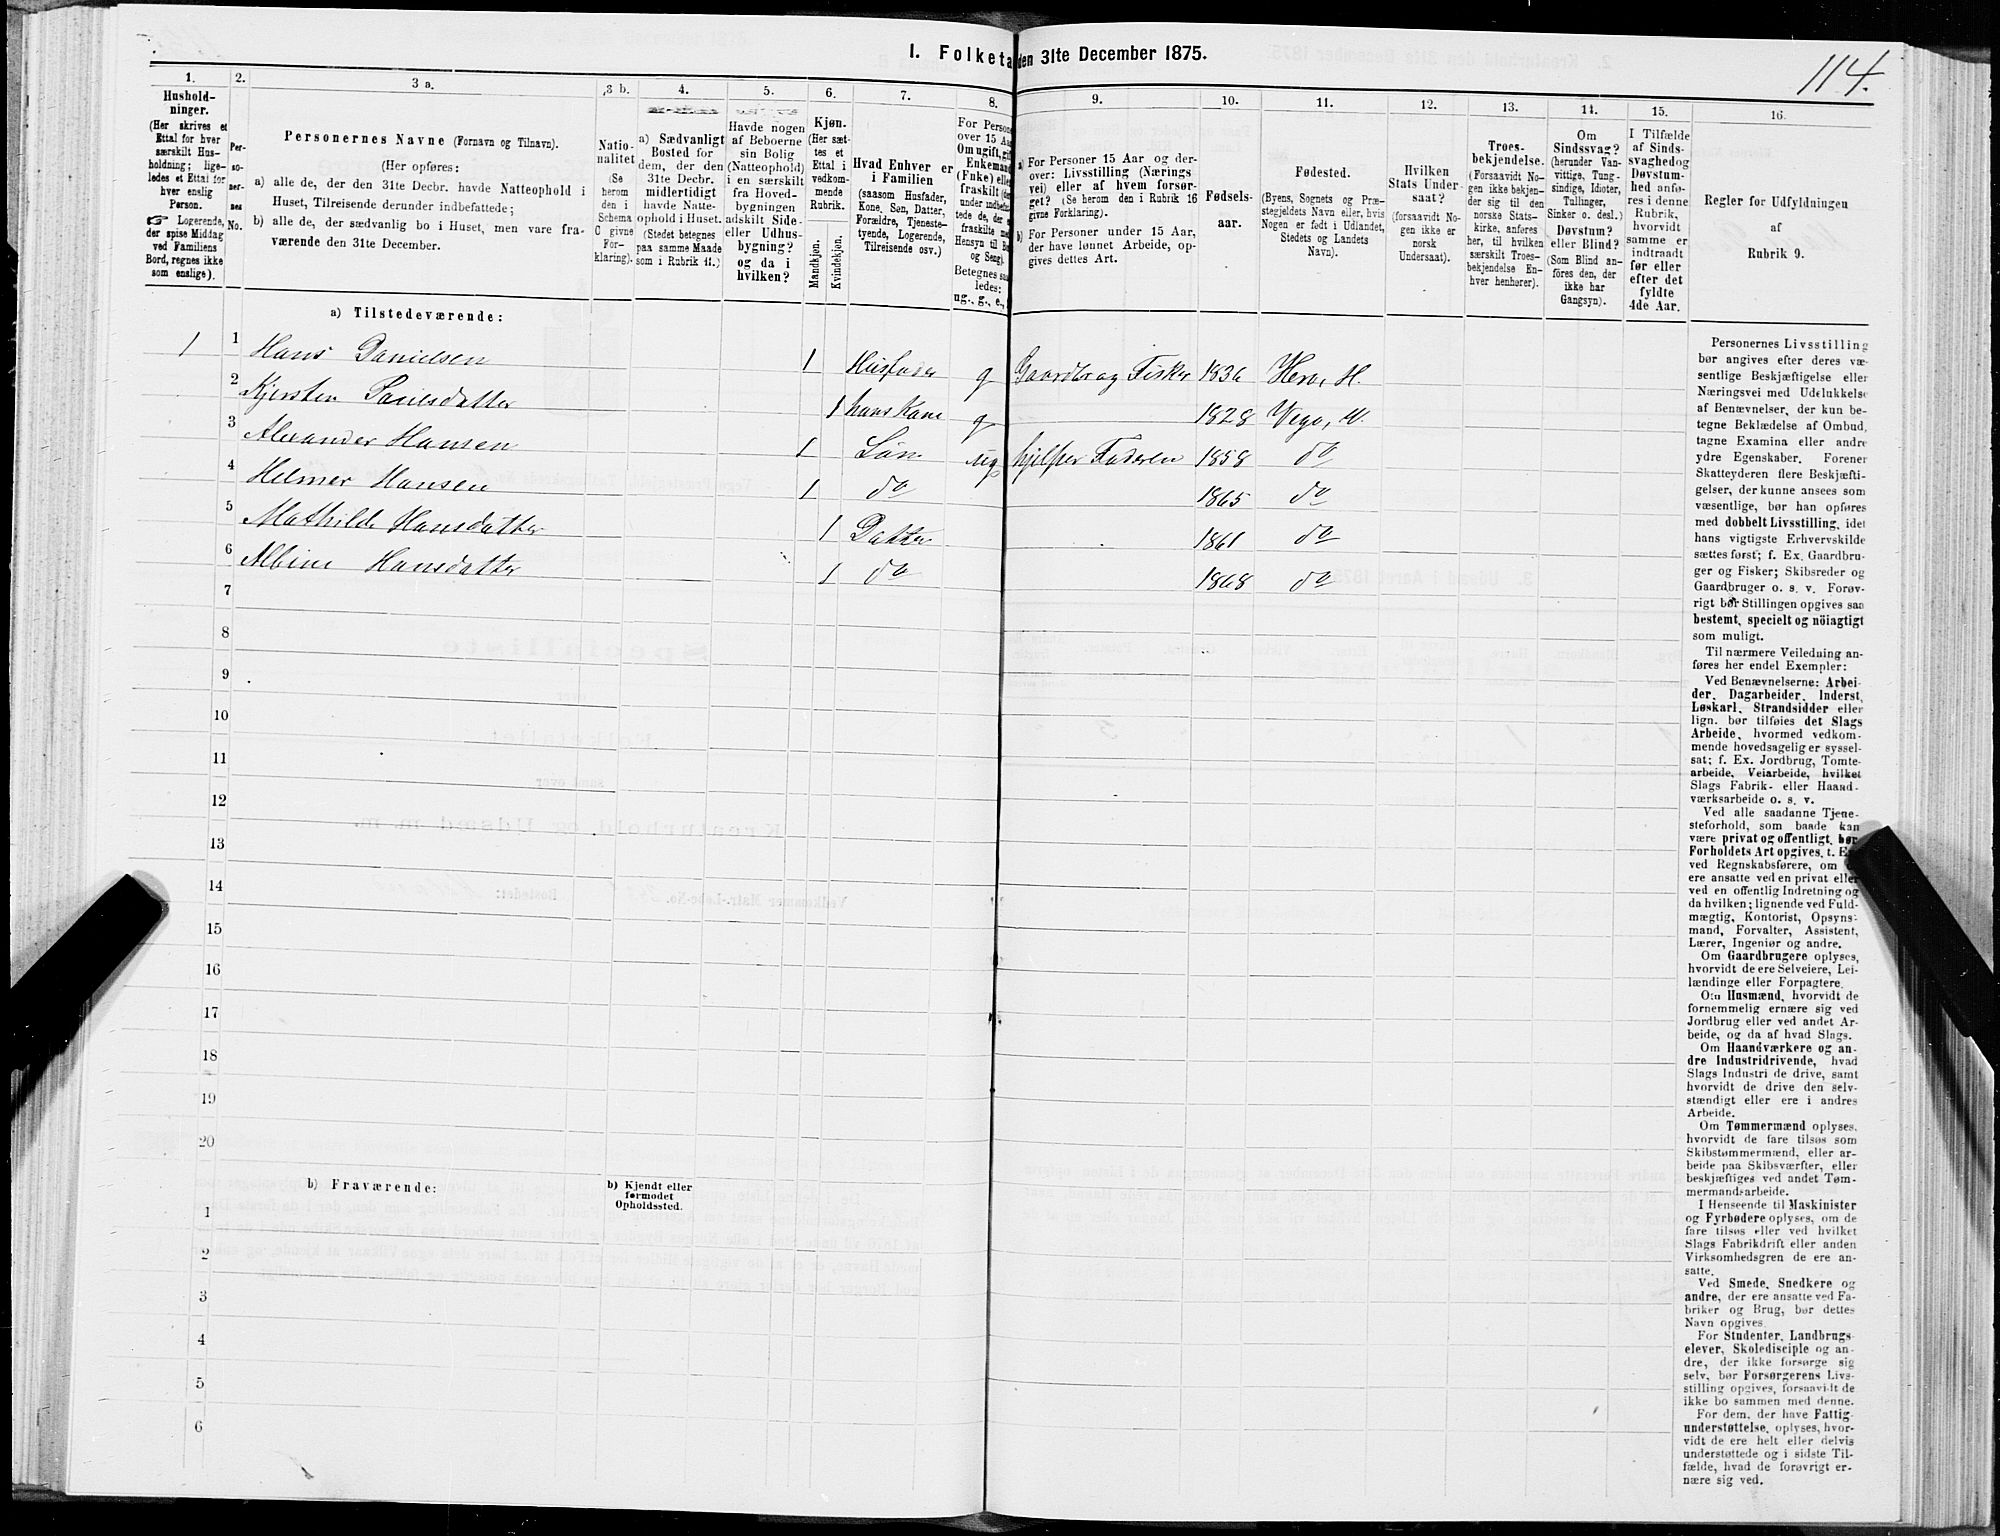 I. Folketa den 31te December 1875.
114.
1.
Hushold-
ninger.
(Her skrives et
Ettal for hver
særskilt Hus-
holdning; lige-
ledes et Ettal for
hver enslig
Person.
Logerende,
der spise Middag
ved Familiens
Bord, regnes ikke
som enslige).
2.
Per-
so-
ner-
nes
No.
3 a.
Personernes Navne (Fornavn og Tilnavn).
(Her opføres:
a) alle de, der den 31te Decbr. havde Natteophold i
Huset, Tilreisende derunder indbefattede;
b) alle de, der sædvanlig bo i Huset, men vare fra-
værende den 31te December.
3 b.
Natio-
nalitet
(Se
herom
den i
Schema
C givne
For-
klaring).
4.
a) Sædvanligt
Bosted for
dem, der den
31te Decbr.
midlertidigt
havde Natte-
ophold i Huset.
(Stedet betegnes
paa samme Maade
som i Rubrik 11.)
5.
Havde nogen
af Beboerne
sin Bolig
(Natteophold)
i en særskilt
fra Hoved-
bygningen
adskilt Side-
eller Udhus-
bygning?
og da i
hvilken?
6.
Kjøn.
(Her sæt-
tes et
Ettal i
vedkom-
mende
Rubrik.
Mandkjøn.
Kvindekjøn.
7.
Hvad Enhver er
i Familien
(saasom Husfader,
Kone, Søn, Datter,
Forældre, Tjeneste-
tyende, Logerende,
Tilreisende osv.)
8.
For Persone
over 15 Aar
Om ugift, gift
Enkemand
(Enke) eller
fraskilt
Hensyn til
og Seng).
Betegnes saa
ledes:
ug., g., e.,
9.
a) For Personer 15 Aar og der-
over: Livsstilling (Nærings
vei) eller af hvem forsør-
get? (Se herom den i Rubrik 16
givne Forklaring).
b) For Personer under 15 Aar,
der have lønnet Arbeide, op-
gives dettes Art.
10.
Fødsels-
aar.
11.
Fødested.
(Byens, Sognets og Præ-
stegjeldets Navn eller, hvis
Nogen er født i Udlandet,
Stedets og Landets
Navn).
12.
Hvilken
Stats Under-
saat?
(forsaavidt No-
gen ikke er
norsk
Undersaat).
13.
Troes-
bekjendelse.
(Forsaavidt No-
gen ikke bekjen-
der sig til den
norske Stats-
kirke, anføres
her, til hvilken
særskilt Troes-
bekjendelse En-
hver henhører).
14.
Om
Sindssvag?
(herunder Van-
vittige, Tung-
sindige, Idioter,
Tullinger,
Sinker o. desl.)
Døvstum?
eller Blind?
(Som Blind an-
føres den, der
ikke har
Gangsyn).
15.
I Tilfælde
af Sinds-
svaghed og
Døvstum-
hed anfø-
res i denne
Rubrik,
hvorvidt
samme er
indtraadt
før eller
efter det
fyldte
4de Aar.
16.
Regler for Udfyldningen
af
Rubrik 9.
a) Tilstedeværende:
1 1 Hans Danielsen 1 Husfader g Gaardbr og Fisker 1836 Herø, H.
2 Kjersten Poulsdatter 1 hans Kone g 1828 Vego, V.
3 Alexander Hansen 1 Søn ug hjelper Faderen 1858 do
4 Helmer Hansen 1 do 1865 do
5 Mathilde Hansdatter 1 Datter 1861 do
6 Albine Hansdatter 1 do 1868 do
7
8
9
10
11
12
13
14
15
16
17
18
19
20
b) Fraværende:
b) Kjendt eller
formodet
Opholdssted.
1
2
3
4
5
6
Personernes Livsstilling
bør angives efter deres væ-
sentlige Beskjæftigelse eller
Næringsvei med Udelukkelse
af Benævnelser, der kun be-
tegne Beklædelse af Ombud,
tagne Examina eller andre
ydre Egenskaber. Forener
Skatteyderen flere Beskjæfti-
gelser, der kunne ansees som
væsentlige, bør han opføres
med dobbelt Livsstilling, idet
hans vigtigste Erhvervskilde
sættes først; f. Ex. Gaardbru-
ger og Fisker; Skibsreder og
Gaardbruger o. s. v. Forøv-
rigt bør Stillingen opgives saa
bestemt, specielt og nöiagtigt
som muligt.
Til nærmere Veiledning an-
føres her endel Exempler:
Ved Benævnelserne: Arbei-
der, Dagarbeider, Inderst,
Løskarl, Strandsidder eller
lign. bør tilføies det Slags
Arbeide, hvormed vedkom-
mende hovedsagelig er syssel-
sat; f. Ex. Jordbrug, Tomte-
arbeide, Veiarbeide, hvilket
Slags Fabrik- eller Haand-
værksarbeide o. s. v.
Ved alle saadanne Tjene-
steforhold, som baade kan
være privat og offentligt, bør
Forholdets Art opgives, t. Ex.
ved Regnskabsførere, om
ere ansatte ved en privat eller
ved en offentlig Indretning og
da hvilken; lignende ved Fuld-
mægtig, Kontorist, Opsyns-
mand, Forvalter, Assistent,
Lærer, Ingeniør og andre.
Om Gaardbrugere oplyses,
hvorvidt de ere Selveiere, Lei-
lændinge eller Forpagtere.
Om Husmænd, hvorvidt de
fornemmelig ernære sig ved
Jordbrug eller ved andet Ar-
beide, og da af hvad Slags.
Om Haandværkere og an-
dre Industridrivende, hvad
Slags Industri de drive, samt
hvorvidt de drive den selv-
stændigt eller ere i andres
Arbeide.
Om Tømmermænd oplyses,
hvorvidt de fare tilsøs som
Skibstømmermænd, eller ar-
beide paa Skibsværfter, eller
beskjæftiges ved andet Tøm-
mermandsarbeide.
I Henseende til Maskinister
og Fyrbødere oplyses, om de
fare tilsøs eller ved hvilket
Slags Fabrikdrift eller anden
Virksomhedsgren de ere an-
satte.
Ved Smede, Snedkere og
andre, der ere ansatte ved Fa-
briker og Brug, bør dettes
Navn opgives.
For Studenter, Landbrugs-
elever, Skoledisciple og an-
dre, der ikke forsørge sig
selv, bør Forsørgerens Livs-
stilling opgives, forsaavidt de
ikke bo sammen med denne.
For dem, der have Fattig-
understøttelse, oplyses, hvor-
vidt de ere helt eller delvis
understøttede og i sidste Til-
fælde, hvad de forøvrigt er-
nære sig ved.